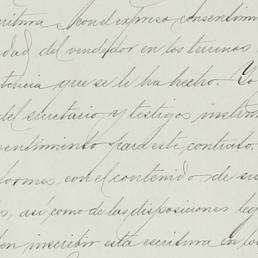 critura, con el expreso consentim
dad del vendedor en los terrenos
tencia que se le ha hecho. Yo
del secretario y testigos instrum
sentimiento para este contrato.
formes con el contenido de su
s, así como de las disposiciones leg
en inscribir esta escritura en los